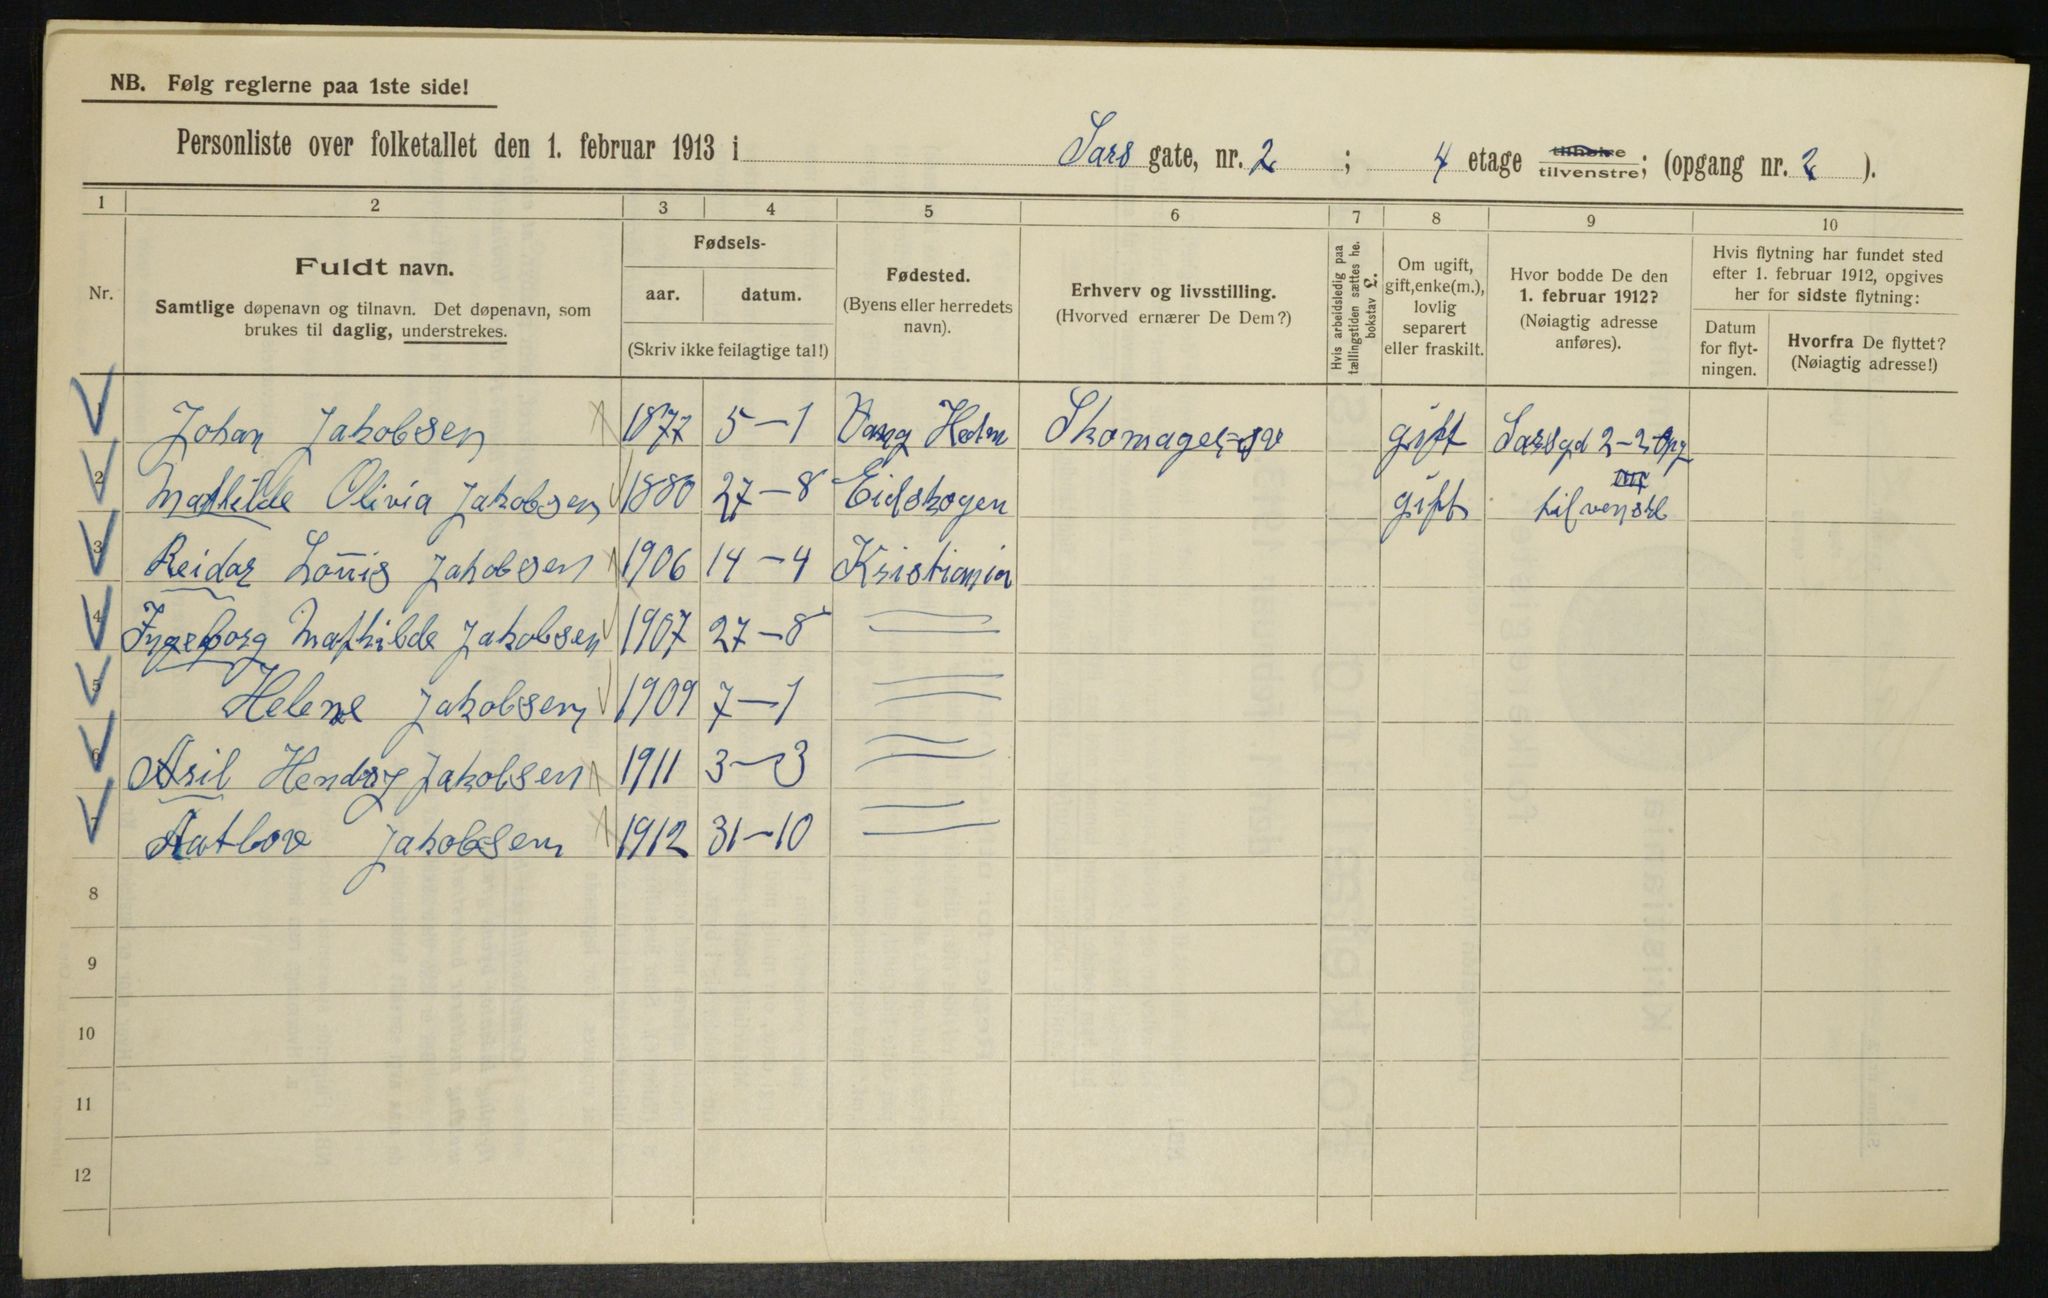 NB. Følg reglerne paa 1ste side!
Personliste over folketallet den 1. februar 1913 i Sars gate, nr. 2 ; 4 etage tilhøire tilvenstre; (opgang nr. 2 ).
1 2 3 4 5 6 7 8 9 10
Nr.
Fuldt navn.
Samtlige døpenavn og tilnavn. Det døpenavn, som
brukes til daglig, understrekes.
Fødsels-
aar. datum.
(Skriv ikke feilagtige tal!)
Fødested.
(Byens eller herredets
navn).
Erhverv og livsstilling.
(Hvorved ernærer De Dem?)
Hvis arbeidsledig paa
tællingstiden sættes he.
bokstav L.
Om ugift,
gift, enke(m.),
lovlig
separert
eller fraskilt.
Hvor bodde De den
1. februar 1912?
(Nøiagtig adresse
anføres).
Hvis flytning har fundet sted
efter 1. februar 1912, opgives
her for sidste flytning:
Datum
for flyt-
ningen.
Hvorfra De flyttet?
(Nøiagtig adresse!)
1 Johan Jakobsen 1877 5-1 Vang Hedm Skomager gift Sarsgd 2-2 Opg
2 Mathilde Olivia Jakobsen 1880 27-8 Eidskogen gift til venstre
3 Reidar Louis Jakobsen 1906 14-4 Kristiania
4 Ingeborg Mathilde Jakobsen 1907 27-8
5 Helene Jakobsen 1909 7-1
6 Asil Hendry Jakobsen 1911 3-3
7 Jakobsen 1912 31-10
8
9
10
11
12